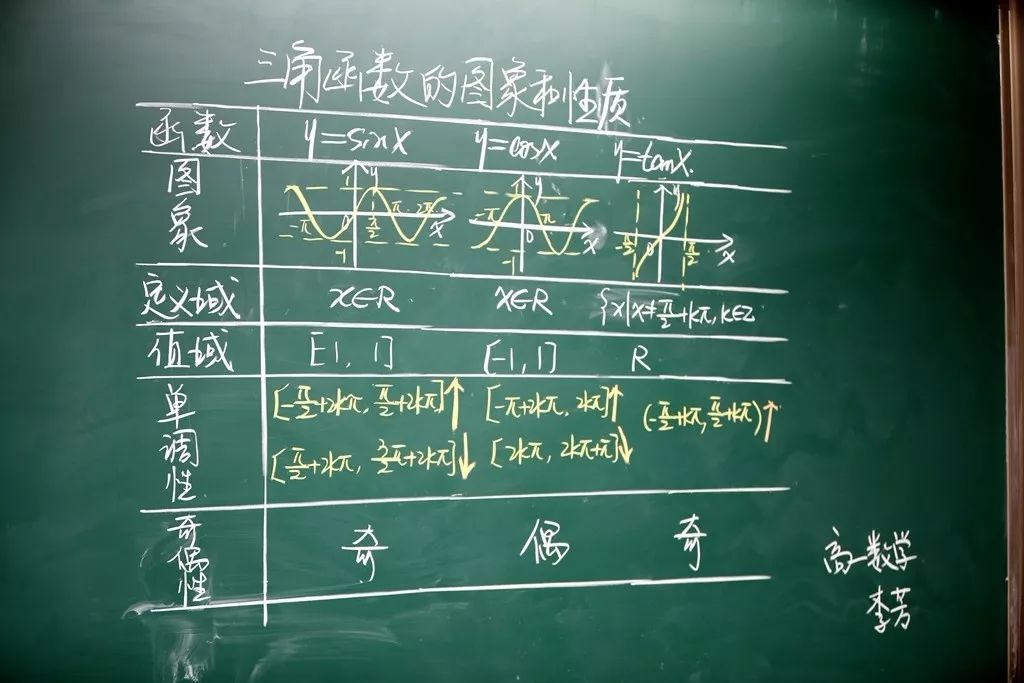 三角函数的图象和性质
函数 y=sinx y=cosx y=tanx.
图象
1 y -π 0 π/2 π 2π x -1
y -π 0 π x -1
y -π/2 0 π/2 x
定义域 x∈R. x∈R {x|x≠π/2+kπ,k∈Z
值域 [1, 1] [-1, 1] R
单调性
[-π/2+2kπ, π/2+2kπ]↑ [-π+2kπ, 2kπ]↑ (-π/2+kπ, π/2+kπ)↑
[π/2+2kπ, 3/2π+2kπ]↓ [2kπ, 2kπ+π]↓
奇偶性 奇 偶 奇
高一数学
李芳